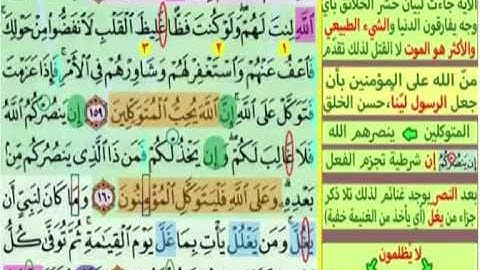 ٱللَّهِ لِنتَ لَهُمْ وَلَوْ كُنتَ فَظًّا غَلِيظَ ٱلْقَلْبِ لَٱنفَضُّوا۟ مِنْ حَوْلِكَ
١ ٢ ٣
فَٱعْفُ عَنْهُمْ وَٱسْتَغْفِرْ لَهُمْ وَشَاوِرْهُمْ فِى ٱلْأَمْرِ فَإِذَا عَزَمْتَ
فَتَوَكَّلْ عَلَى ٱللَّهِ إِنَّ ٱللَّهَ يُحِبُّ ٱلْمُتَوَكِّلِينَ ١٥٩ إِن يَنصُرْكُمُ ٱللَّهُ
فَلَا غَالِبَ لَكُمْ وَإِن يَخْذُلْكُمْ فَمَن ذَا ٱلَّذِى يَنصُرُكُم مِّنۢ
بَعْدِهِۦ وَعَلَى ٱللَّهِ فَلْيَتَوَكَّلِ ٱلْمُؤْمِنُونَ ١٦٠ وَمَا كَانَ لِنَبِىٍّ أَن
يَغُلَّ وَمَن يَغْلُلْ يَأْتِ بِمَا غَلَّ يَوْمَ ٱلْقِيَٰمَةِ ثُمَّ تُوَفَّىٰ كُلُّ
الآية جاءت لبيان حشر الخلائق بأي
وجه يفارقون الدنيا والشيء الطبيعي
والأكثر هو الموت لا القتل لذلك تقدم
منّ الله على المؤمنين بأن
جعل الرسول ليّنا، حسن الخلق
المتوكلين ينصرهم الله
إِن يَنصُرْكُمُ إن شرطية تجزم الفعل
بعد النصر يوجد غنائم لذلك تلا ذكر
جزاء من يغلّ (أي يأخذ من الغنيمة خفية)
لا يُظلمون